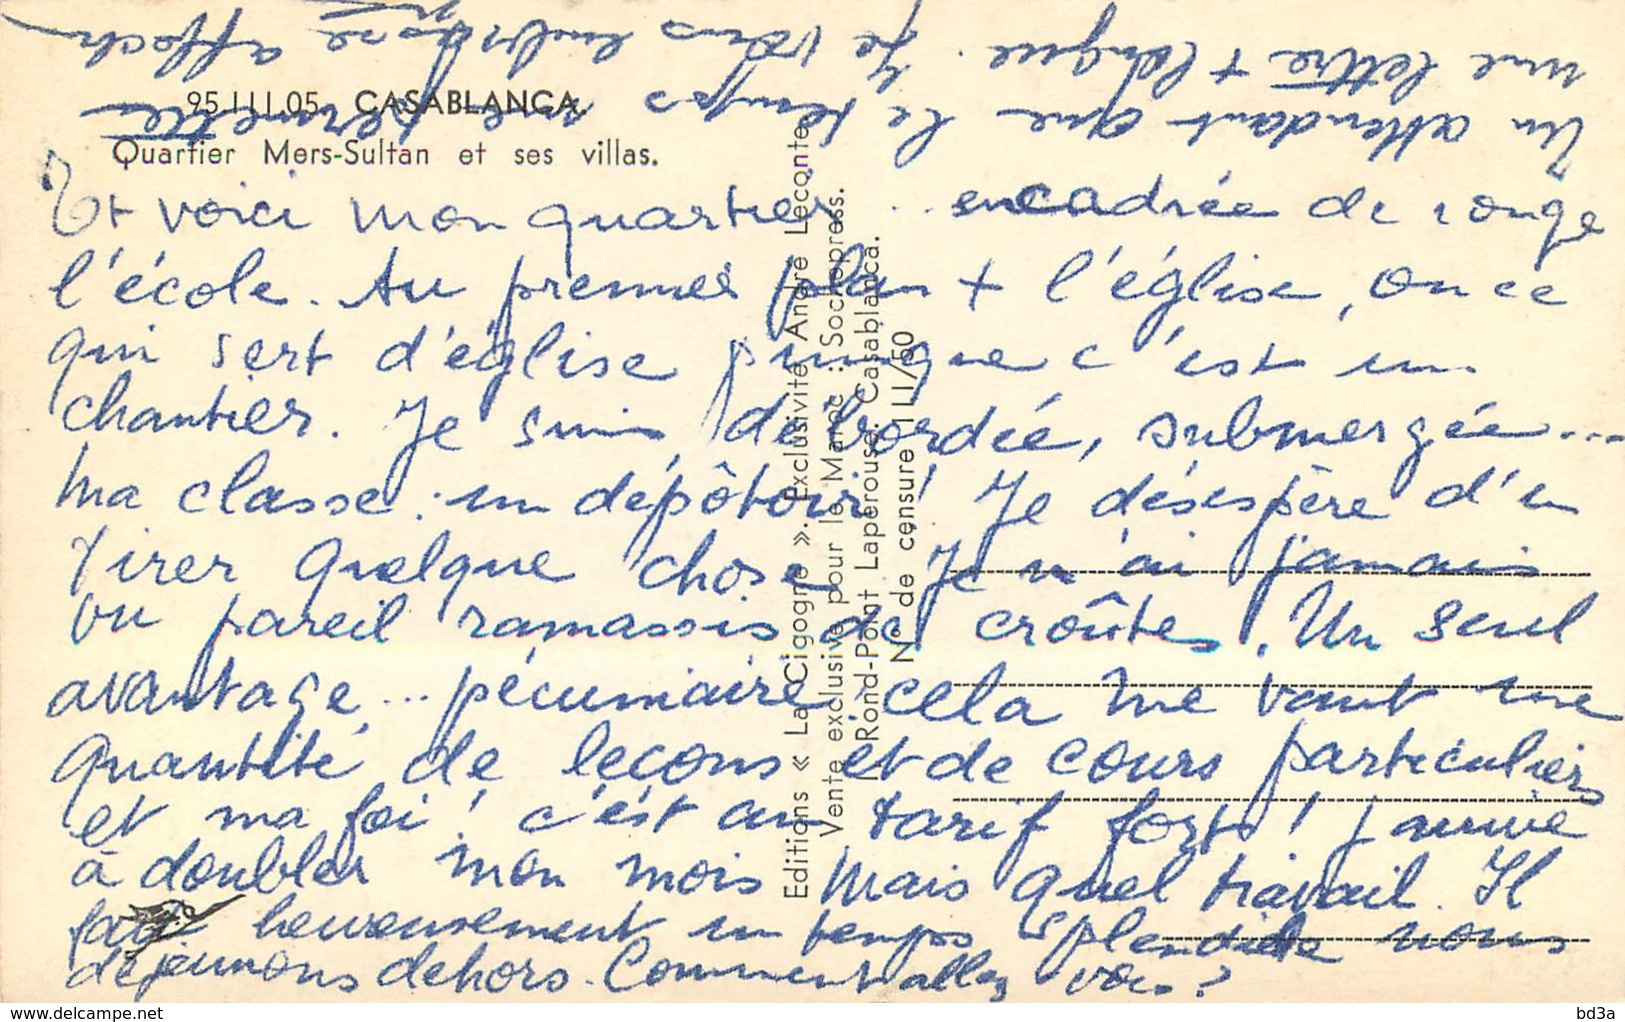 95.III.05 CASABLANCA
Quartier Mers-Sultan et ses villas.
Et voici mon quartier .. encadrée de rouge
l'école. Au premier plan + l'église, ou ce
qui sert d'église puisque c'est un
chantier. Je suis débordée, submergée...
ma classe : un dépôtoir ! Je désespère d'en
tirer quelque chose. Je n'ai jamais
vu pareil ramassis de croûtes. Un seul
avantage... pécuniaire. cela me vaut une
quantité de leçons et de cours particuliers
et ma foi ! c'est au tarif fort ! j'arrive
à doubler mon mois Mais quel travail. Il
fait heureusement un temps splendide nous
déjeunons dehors. Comment allez vous ?
En attendant que le temps me permette
une lettre + longue. Je vous embrasse affect
Editions « La Cigogne ». Exclusivité André Leconte.
Vente exclusive pour le Maroc : Sochepress.
1 Rond-Point Lapérouse. Casablanca.
N° de censure I LI/50
bd3a
delcampe.net